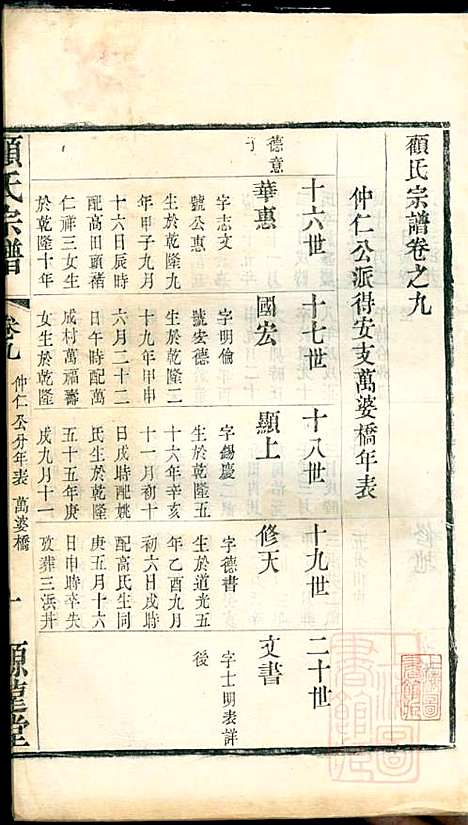 顧氏宗譜卷之九
仲仁公派得安支萬婆橋年表
十六世
十七世
十八世
十九世
二十世
德意
子
華惠
字志文
號公惠
生於乾隆九
年甲子九月
十六日辰時
配高田頭褚
仁祥三女生
於乾隆十年
國宏
字明倫
號安德
生於乾隆二
十九年甲申
六月二十二
日午時配萬
成村萬福壽
女生於乾隆
顯上
字錫慶
生於乾隆五
十六年辛亥
十一月初十
日戌時配姚
氏生於乾隆
五十五年庚
戌九月十一
修天
字德書
生於道光五
年乙酉九月
初六日戌時
配高氏生同
庚五月十六
日申時卒失
攷葬三浜井
文書
字士明表詳
後
顧氏宗譜
卷九
仲仁公分年表
萬婆橋
一
源蓬堂
上海圖
書館藏